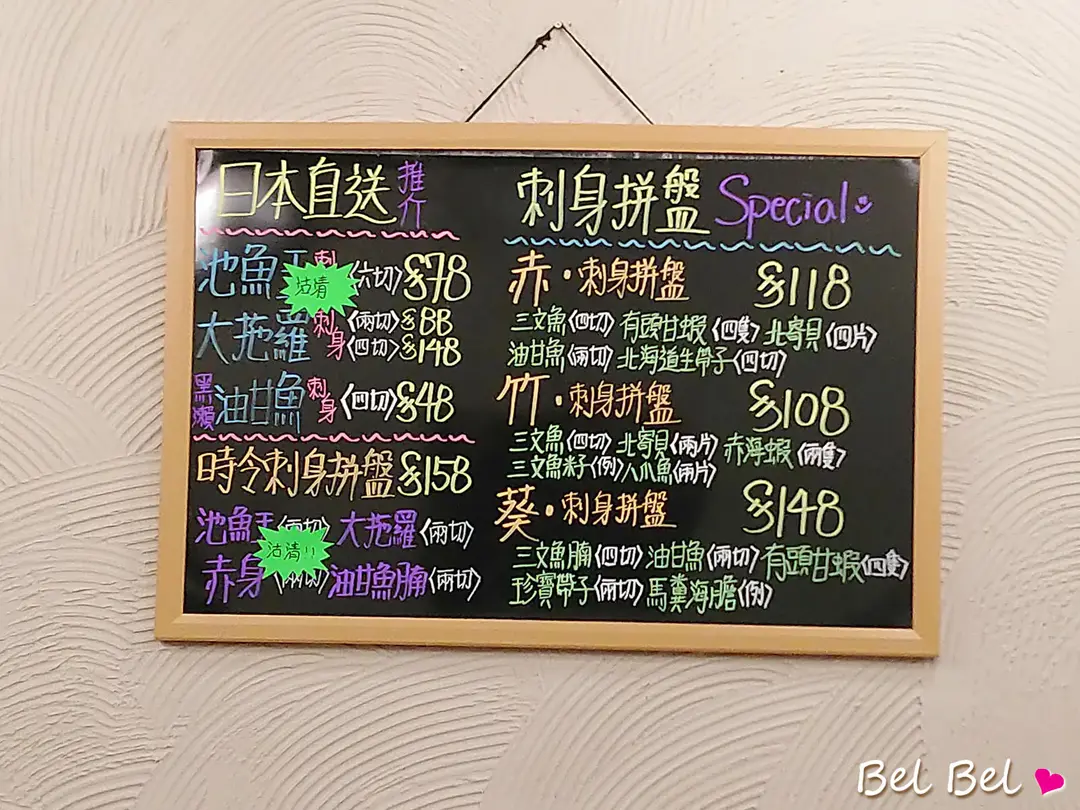 日本直送 推介
池魚王 刺 〈六切〉 $78
沽清
大拖羅 刺身 〈兩切〉 $88
〈四切〉 $148
黑瀨 油甘魚 刺身 〈四切〉 $48
時令刺身拼盤 $158
池魚王〈兩切〉 大拖羅〈兩切〉
沽清!!
赤身〈兩切〉 油甘魚腩〈兩切〉
刺身拼盤 Special
赤・刺身拼盤 $118
三文魚〈四切〉 有頭甘蝦〈四隻〉 北寄貝〈四片〉
油甘魚〈兩切〉 北海道生帶子〈四切〉
竹・刺身拼盤 $108
三文魚〈四切〉 北寄貝〈兩片〉 赤海蝦〈兩隻〉
三文魚籽〈例〉 八爪魚〈兩片〉
葵・刺身拼盤 $148
三文魚腩〈四切〉 油甘魚〈兩切〉 有頭甘蝦〈四隻〉
珍寶帶子〈兩切〉 馬糞海膽〈例〉
Bel Bel